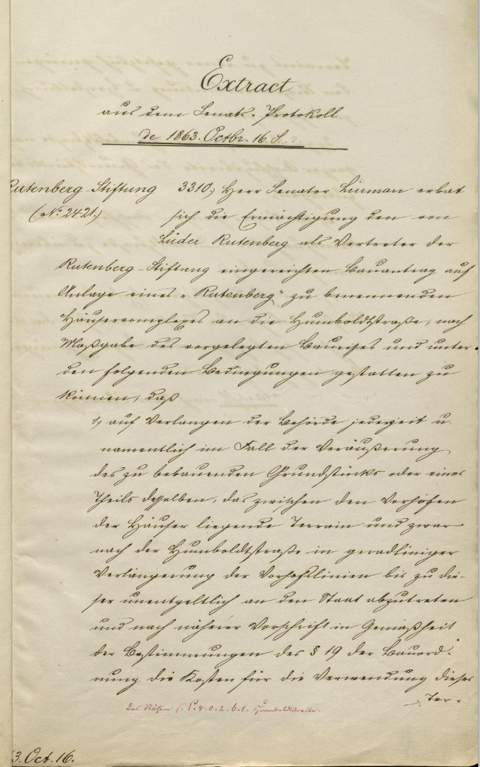 Extract
aus dem Senats-Protokoll
de 1863. Octbr. 16. S.
Rutenberg Stiftung 3310, Herr Senator Lürman erbat
(No. 2421.) sich die Ermächtigung den von
Lüder Rutenberg als Vertreter der
Rutenberg-Stiftung eingereichten Bauantrag auf
Anlage eines "Rutenberg" zu benennenden
Häusercomplexes an die Humboldtstraße, nach
Maßgabe des vorgelegten Baurisses und unter
den folgenden Bedingungen gestatten zu
können, daß
1, auf Verlangen der Behörde jederzeit u.
namentlich im Fall der Veräußerung
des zu bebauenden Grundstücks oder eines
Theils desselben, das zwischen den Vorhöfen
der Häuser liegende Terrain und zwar
nach der Humboldtstraße in geradliniger
Verlängerung der Vorhofslinien bis zu die-
ser unentgeltlich an den Staat abzutreten
und nach näherer Vorschrift in Gemäßheit
der Bestimmungen des § 19 der Bauord-
nung die Kosten für die Verwendung dieses
Ter-
Das Nähere s. P. 4. o. 2. b. 1. Humboldtstraße.
3. Oct. 16.